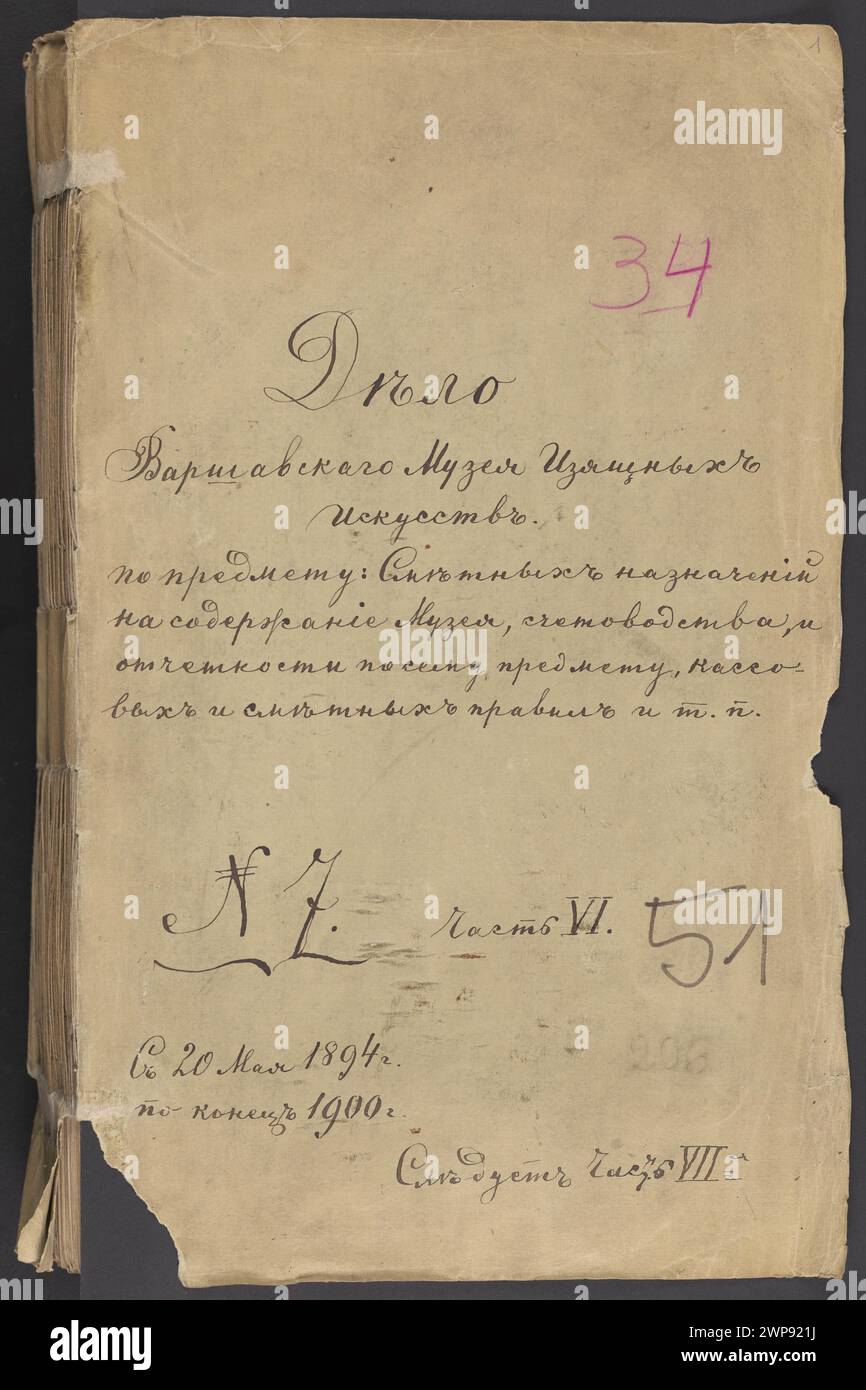 1
34
Дѣло
Варшавскаго Музея Изящныхъ
Искусствъ.
по предмету: Смѣтныхъ назначеній
на содержаніе Музея, счетоводства, и
отчетности по сему предмету, кассо-
выхъ и смѣтныхъ правилъ и т. п.
N 7. Часть VI. 51
Съ 20 Мая 1894 г.
по конецъ 1900 г.
Слѣдуетъ Часть VII
alamy
Image ID: 2WP921J
www.alamy.com